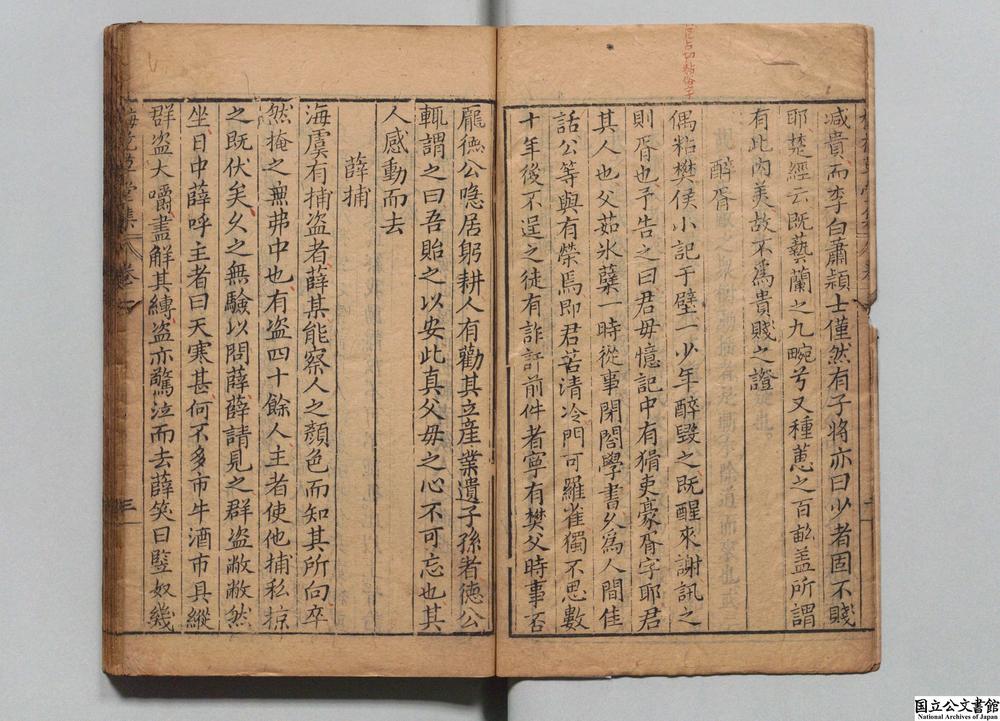 减貴而李白蕭穎士僅然有子將亦曰少者固不賤
耶楚經云既藝蘭之九畹兮又種蕙之百畝盖所謂
有此内美故不爲貴賤之證
醉胥
偶粘樊侯小記于壁一少年醉毀之既醒來謝訊之
則胥也予告之曰君毋憶記中有猾吏豪胥字耶君
其人也父茹氷蘖一時從事閑閤學書久爲人間佳
話公等與有榮焉即君苦清冷門可羅雀獨不思數
十年後不逞之徒有詐訐前件者寧有樊父時事否
龐德公隱居躬耕人有勸其立産業遺子孫者德公
輒謂之曰吾貽之以安此真父毋之心不可忘也其
人感動而去
薛捕
海虞有捕盗者薛某能察人之顔色而知其所向卒
然掩之無弗中也有盗四十餘人主者使他捕私掠
之既伏矣久之無驗以問薛薛請見之群盗敝敝然
坐日中薛呼主者曰天寒甚何不多市牛酒市具縱
群盗大嚼盡解其縛盗亦驚泣而去薛笑曰豎奴幾
草堂集
卷
三
国立公文書館
National Archives of Japan